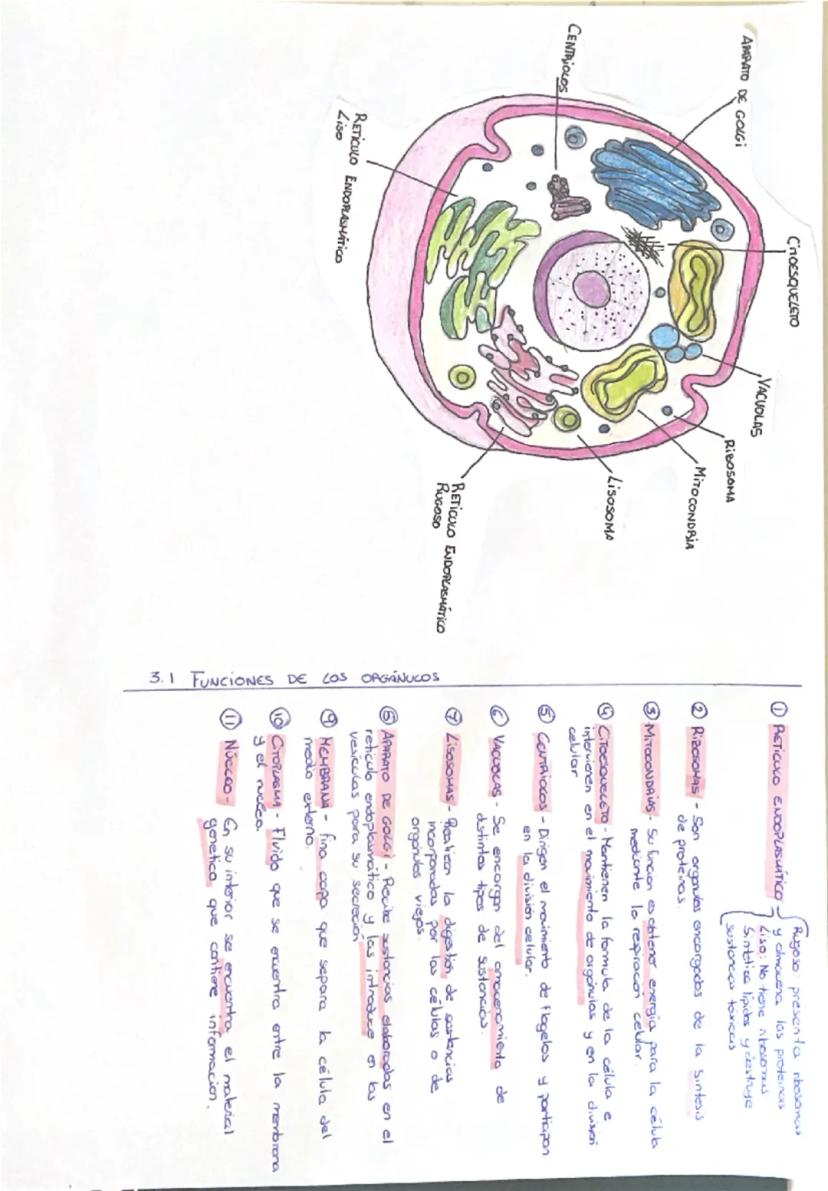 APARATO DE GOLGI
CITOESQUELETO
VACUOLAS
RIBOSOMA
MITOCONDRIA
LISOSOMA
RETICULO ENDOPLASMÁTICO
RUGOSO
CENTRIOLOS
RETÍCULO ENDOPLASMÁTICO
LISO
3.1 FUNCIONES DE LOS ORGÁNULOS
① RETICULO ENDOPLASMÁTICO -
Rugoso: presenta ribosomas
y almacena las proteinas
Liso: No tiene ribosomas
Sintetica lípidos y destruye
sustancias tóxicas
② RIBOSOMAS - Son organulos encargados de la síntesis
de proteínas.
③ MITOCONDRIAS - Su funcion es obtener energía para la célula
mediante la respiración celular.
④ CITOESQUELETO - Mantienen la formula de la célula e
intervienen en el movimiento de orgánulos y en la division
celular
⑤ CENTRIOLOS - Dirigen el movimiento de flagelos y participan
en la división celular.
⑥ VACUOLAS - Se encargan del almacenamiento de
distintos tipos de sustancias.
⑦ LISOSOMAS - Realizan la digestión de sustancias
incorporadas por las células o de
orgánulos viejos.
⑧ APARATO DE GOLGI - Recibe sustancias elaboradas en el
retículo endoplasmático y las introduce en las
vesículas para su secreción
⑨ MEMBRANA - fina capa que separa la célula del
medio externo.
⑩ CITOPLASMA - Fluido que se encuentra entre la membrana
y el nucleo.
⑪ NÚCLEO - En su interior se encuentra el material
genetico que contiene informacion.